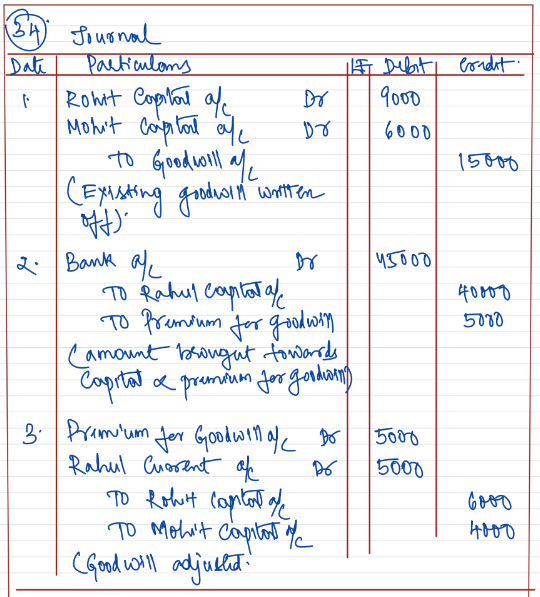 34. Journal
Date Particulars LF Debit Credit.
1. Rohit Capital a/c Dr 9000
Mohit Capital a/c Dr 6000
To Goodwill a/c 15000
(Existing goodwill written
off).
2. Bank a/c Dr 45000
To Rahul Capital a/c 40000
To Premium for goodwill 5000
(amount brought towards
Capital & premium for goodwill)
3. Premium for Goodwill a/c Dr 5000
Rahul Current a/c Dr 5000
To Rohit Capital a/c 6000
To Mohit Capital a/c 4000
(Goodwill adjusted.